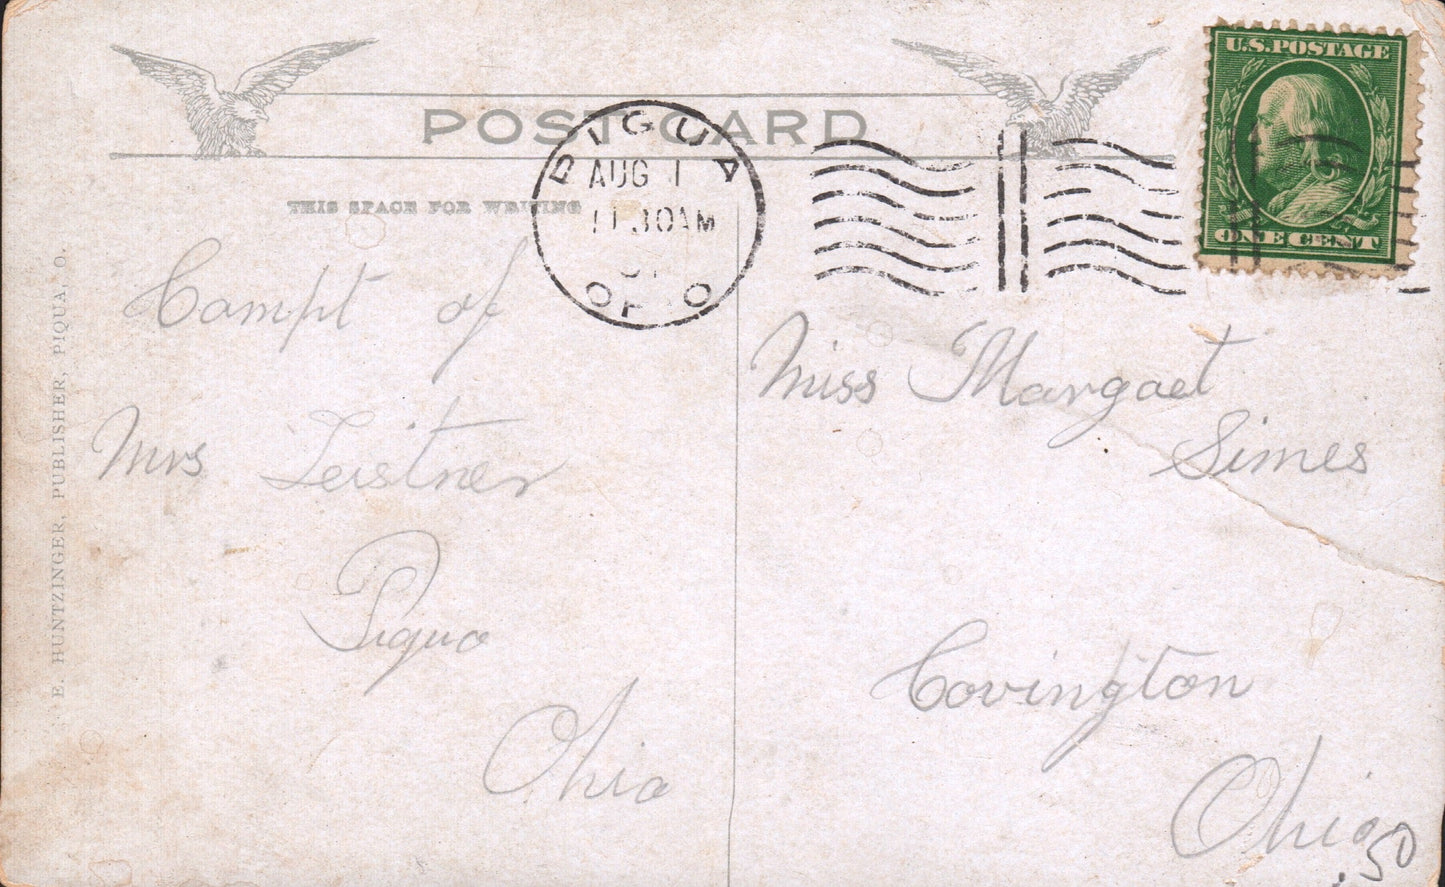 POST CARD
U.S.POSTAGE
ONE CENT
PIQUA
AUG 1
11 30AM
OHIO
THIS SPACE FOR WRITING
Compt of
Mrs Leistner
Piqua
Ohio
Miss Margaet
Simes
Covington
Ohio
.50
E. HUNTZINGER, PUBLISHER, PIQUA, O.